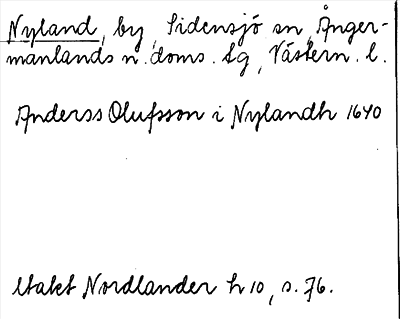 Nyland, by, Sidensjö sn, Ånger-
manlands n. doms. sg, Västern. l.
Anderss Olufsson i Nylandh 1640
Utakt Nordlander h 10, s. 76.